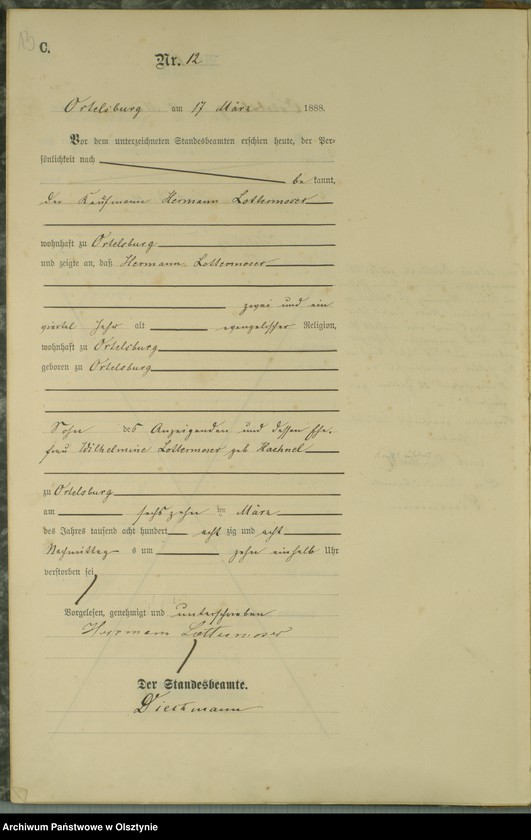 C.
Nr. 12
Ortelsburg am 17 März 1888.
Vor dem unterzeichneten Standesbeamten erschien heute, der Per-
sönlichkeit nach
be kannt,
der Kaufmann Hermann Lottermoser
wohnhaft zu Ortelsburg
und zeigte an, daß Hermann Lottermoser
zwei und ein
viertel Jahr alt evangelischer Religion,
wohnhaft zu Ortelsburg
geboren zu Ortelsburg
Sohn des Anzeigenden und dessen Ehe-
frau Wilhelmine Lottermoser geb Haehnel
zu Ortelsburg
am sechszehn ten März
des Jahres tausend acht hundert acht zig und acht
Nachmittag s um zehn einhalb Uhr
verstorben sei
Vorgelesen, genehmigt und unterschrieben
Herrmann Lottermoser
Der Standesbeamte.
Dieckmann
Archiwum Państwowe w Olsztynie